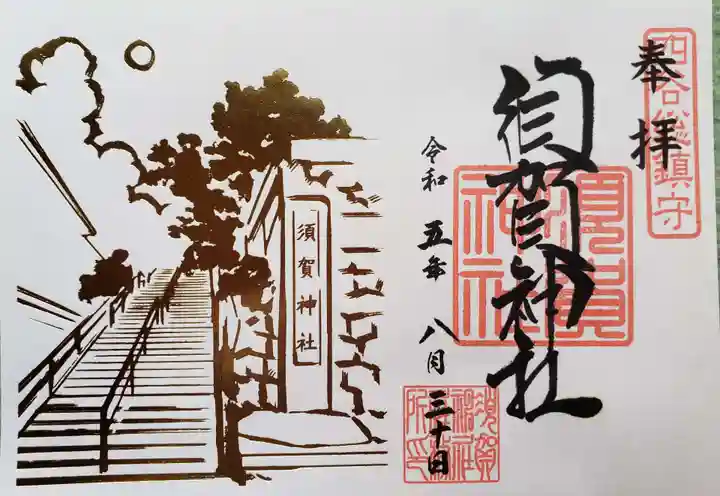 四谷総鎮守
奉拝
須賀神社
令和五年八月三十日
須賀神社